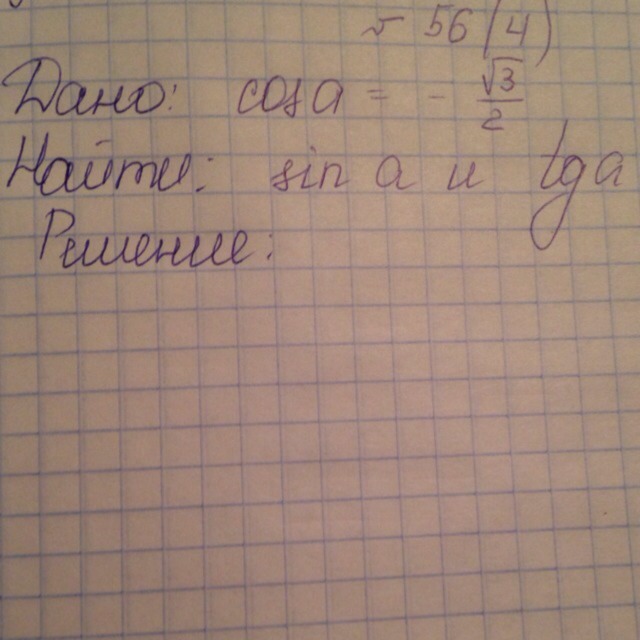 ~ 56 (4)
Дано: cos a = - √3/2
Найти: sin a и tg a
Решение: